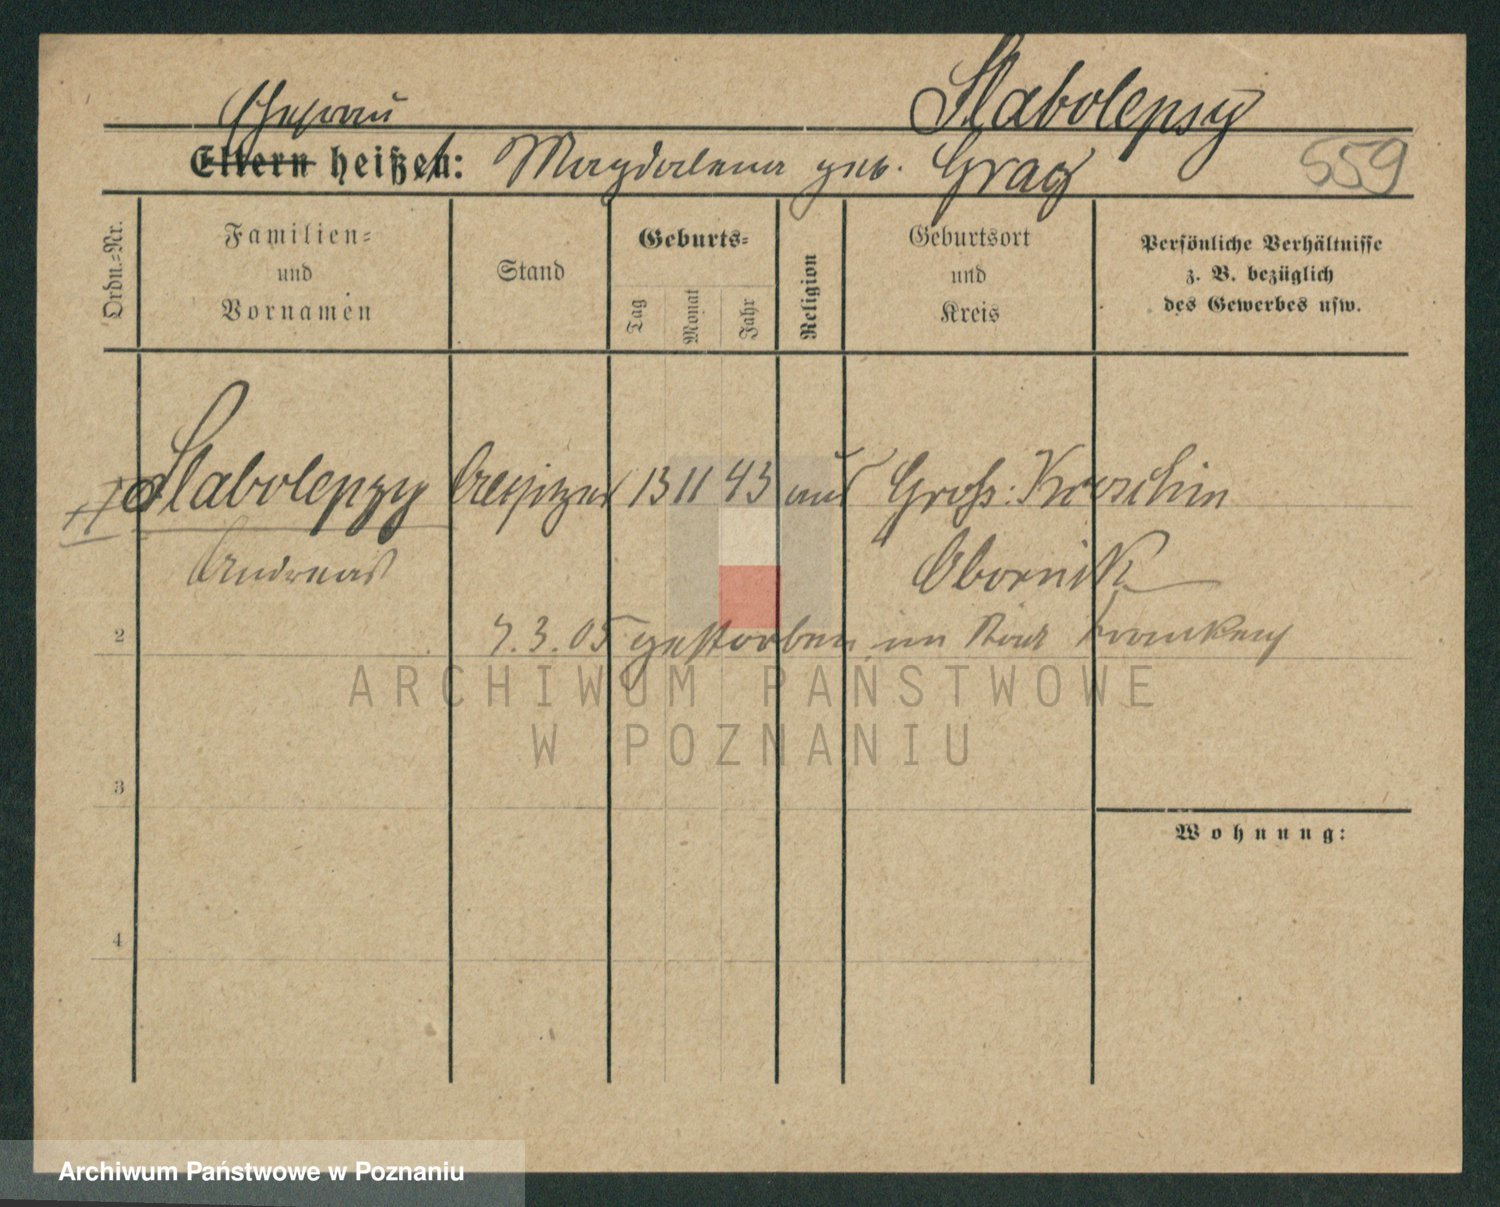 Slabolepsy
Ehefrau
Eltern heißen: Magdalena geb. Grag
559
Ordn.-Nr.
Familien-
und
Vornamen
Stand
Geburts-
Tag
Monat
Jahr
Religion
Geburtsort
und
Kreis
Persönliche Verhältnisse
z. B. bezüglich
des Gewerbes usw.
Slabolepzy 13 11 43 Groß:
Andreas Obornik
2 7.3.05 gestorben im
ARCHIWUM PAŃSTWOWE
W POZNANIU
3
Wohnung:
4
Archiwum Państwowe w Poznaniu